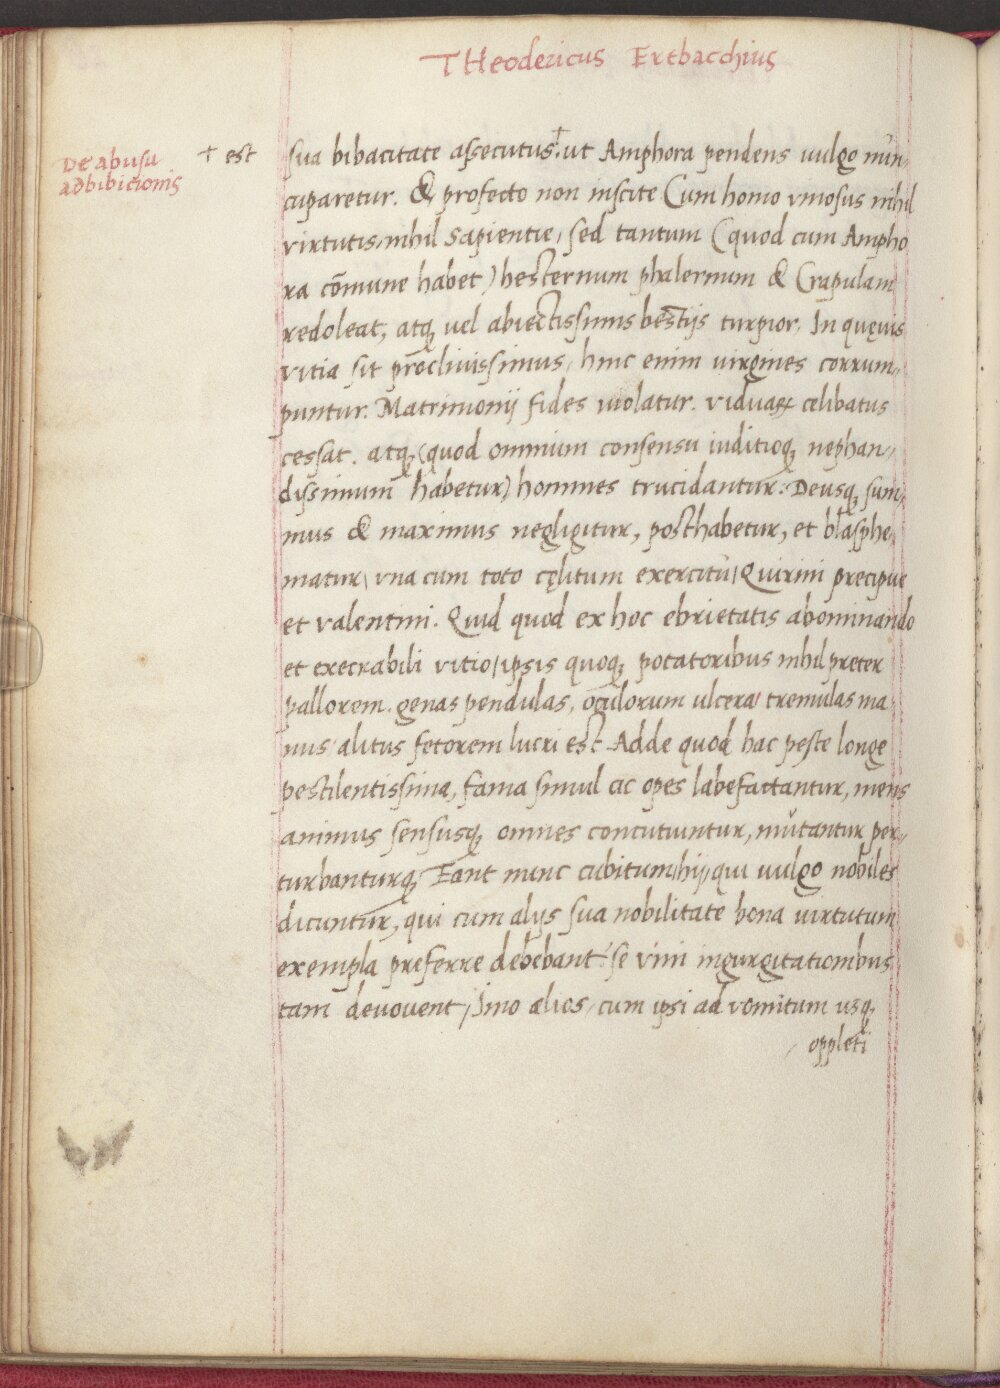 THeodericus Extbacchius
De abusu
adbibicionis
+ est
sua bibacitate assecutus:+ ut Amphora pendens uulgo nūn-
cuparetur. & profecto non inscite Cum homo vinosus nihil
virtutis, nihil sapientie, sed tantum (quod cum Ampho
ra cōmune habet) hesternum phalernum & Crapulam
redoleat, atq; uel abiectissimis bestijs turpior. In quęuis
vitia sit proclivissimus, hinc enim virgines corrum-
puntur. Matrimonij fides uiolatur. viduaꝝ celibatus
cessat. atq; (quod omnium consensu iuditioq; nephan-
dissimum habetur) homines trucidantur: Deusq; sum-
mus & maximus negligitur, posthabetur, et blasphe-
matur, vna cum toto cęlitum exercitu, Quirini precipue
et valentini. Quid quod ex hoc ebrietatis abominando
et execrabili vitio, ipsis quoq; potatoribus nihil preter
pallorem. genas pendulas, oculorum ulcera, tremulas ma-
nus, alitus fetorem lucri est. Adde quod hac peste longe
pestilentissima, fama simul ac opes labefactantur, mens
animus sensusq; omnes concutiuntur, mutantur per-
turbanturq; Eant nunc cubitum, hij, qui uulgo nobiles
dicuntur, qui cum alijs sua nobilitate bona virtutum
exempla preferre debebant: se vini ingurgitationibus
tam devovent, Imo alios, cum ipsi ad vomitum usq;
oppleti